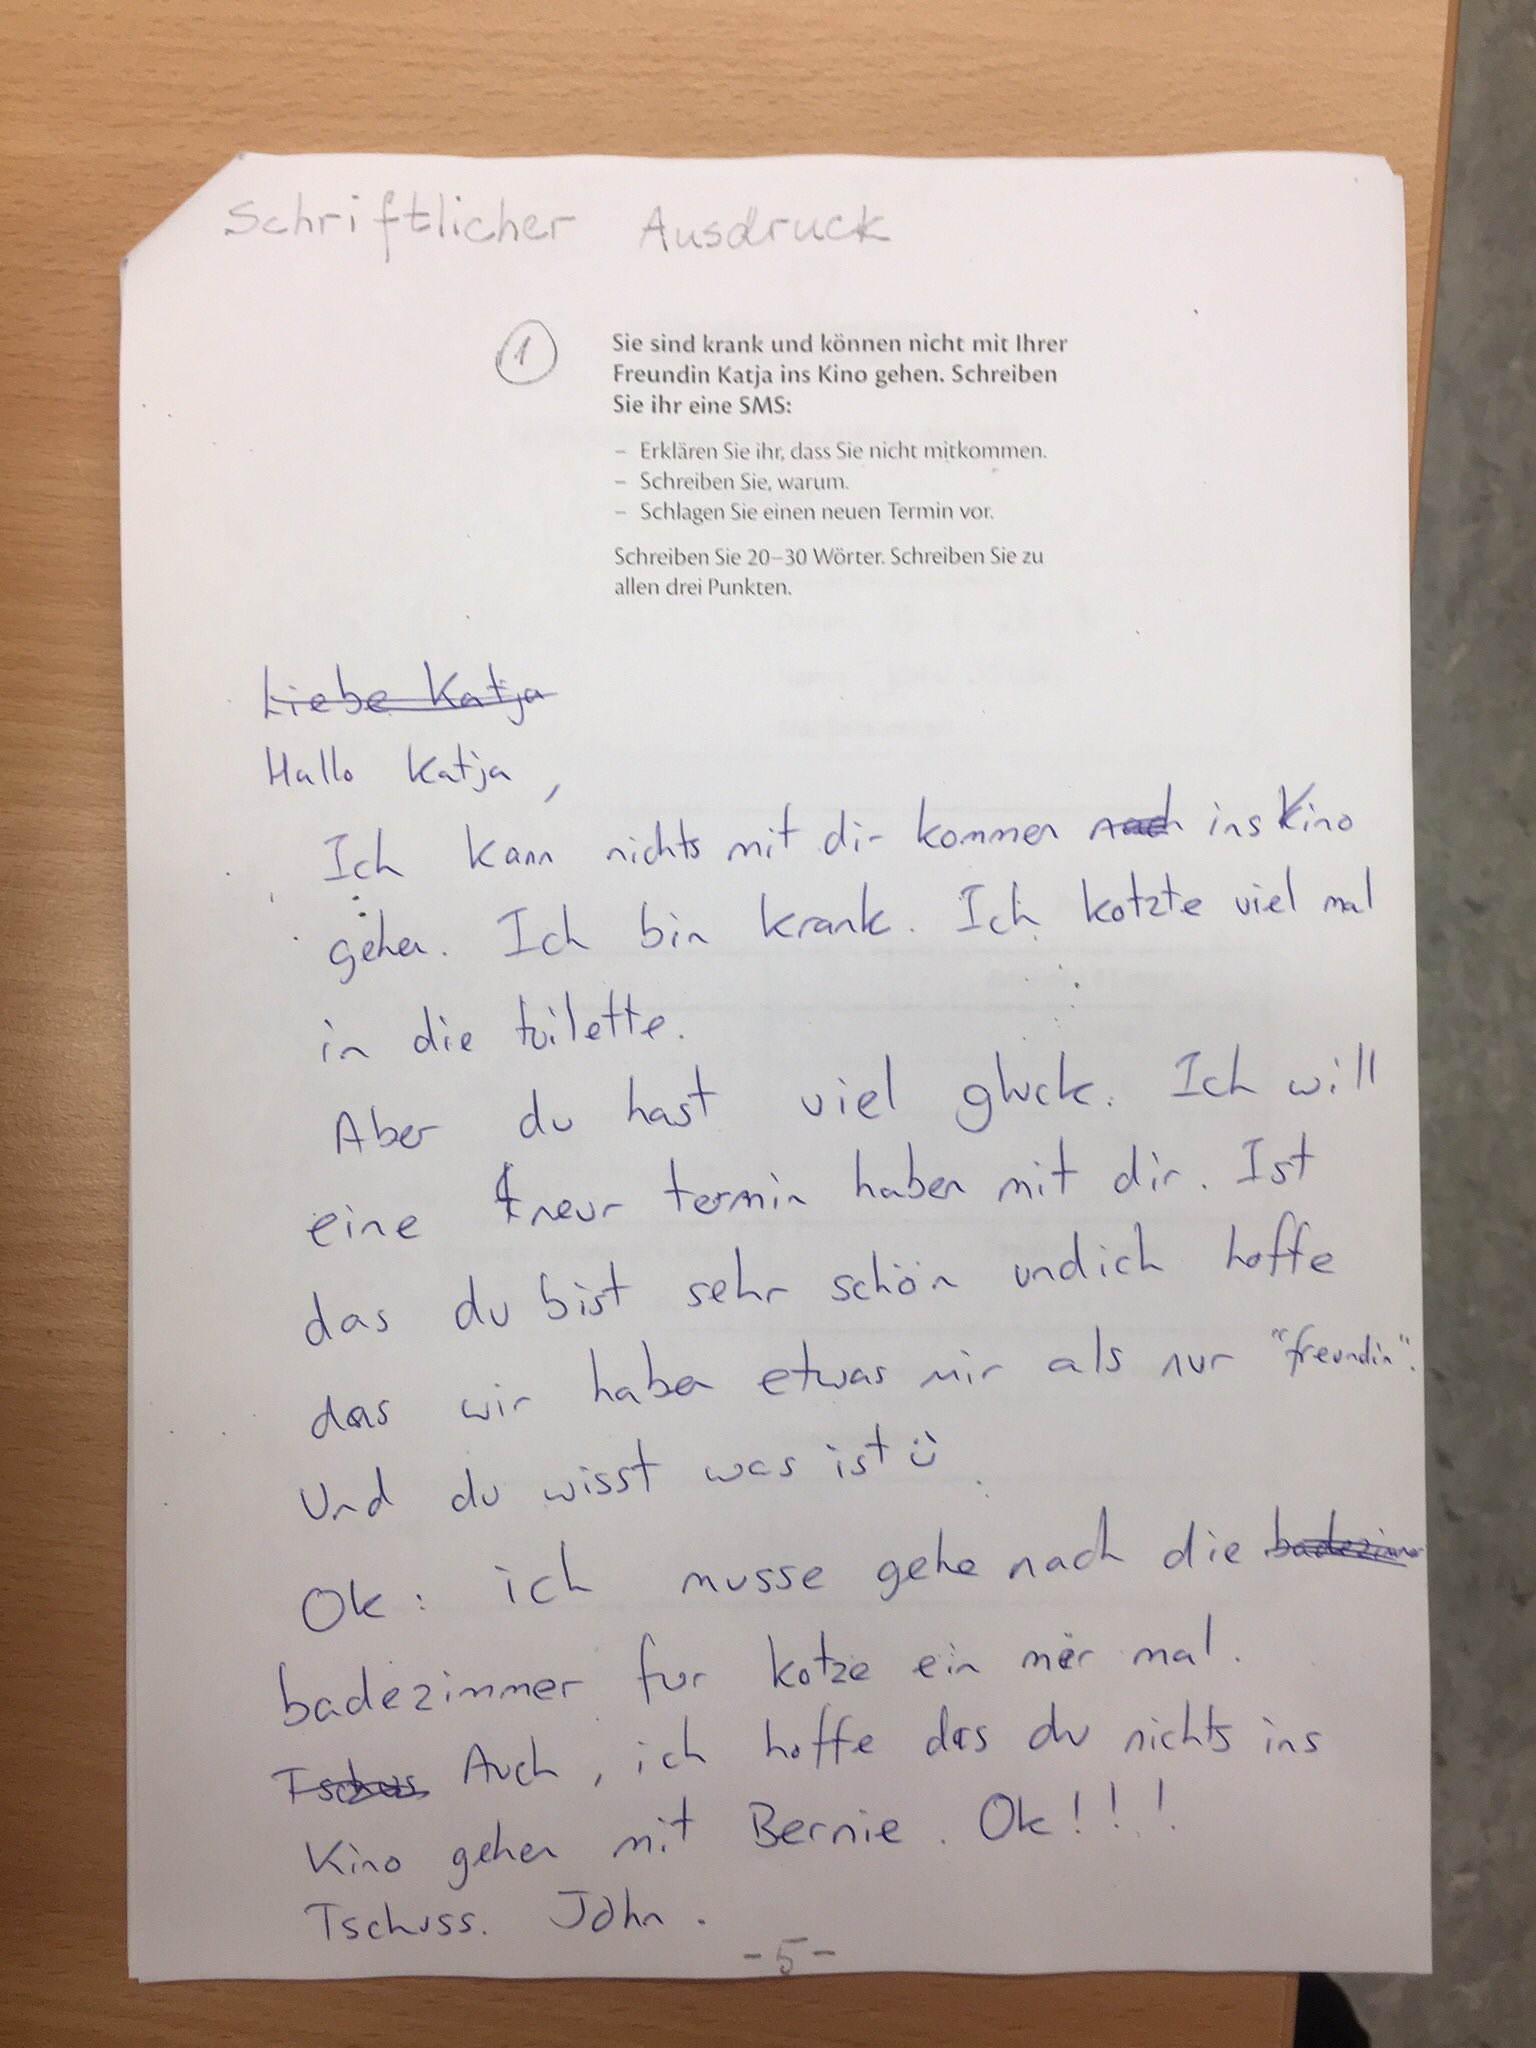 Schriftlicher Ausdruck
1
Sie sind krank und können nicht mit Ihrer
Freundin Katja ins Kino gehen. Schreiben
Sie ihr eine SMS:
– Erklären Sie ihr, dass Sie nicht mitkommen.
– Schreiben Sie, warum.
– Schlagen Sie einen neuen Termin vor.
Schreiben Sie 20–30 Wörter. Schreiben Sie zu
allen drei Punkten.
Liebe Katja
Hallo Katja,
Ich kann nichts mit dir kommen nach ins Kino
gehen. Ich bin krank. Ich kotzte viel mal
in die toilette.
Aber du hast viel gluck. Ich will
eine neur termin haben mit dir. Ist
das du bist sehr schön und ich hoffe
das wir haben etwas mir als nur "freundin".
Und du wisst was ist ü
Ok: ich musse gehe nach die badezimmer
badezimmer fur kotze ein mër mal.
Tschus Auch, ich hoffe das du nichts ins
Kino gehen mit Bernie. Ok!!!
Tschuss. John.
-5-